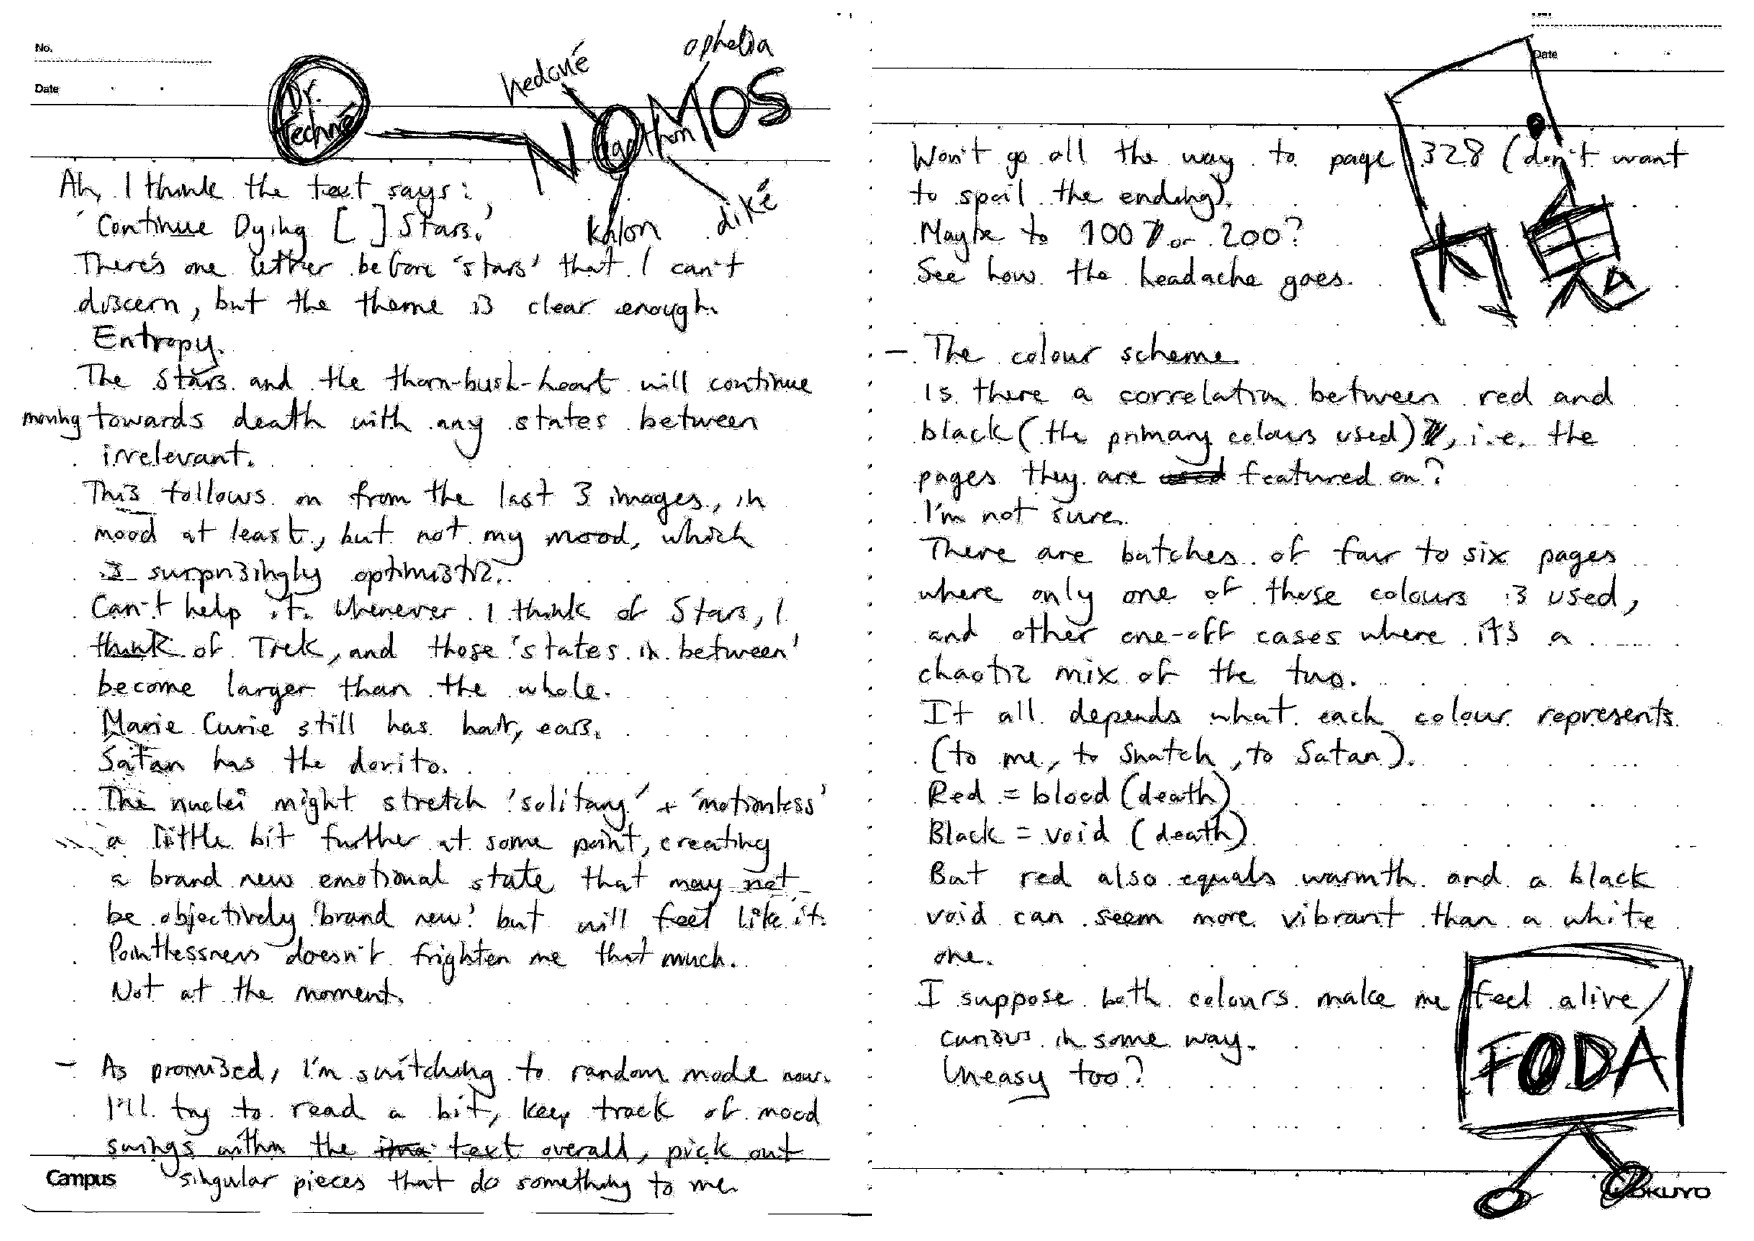 No.
Date
Dr. Techné
hedoné
ophelia
NOMOS
agathon
kalon
diké
Ah, I think the text says:
'Continue Dying [ ] Stars.'
There's one letter before 'stars' that I can't
discern, but the theme is clear enough.
Entropy.
The stars and the thorn-bush-heart will continue
moving towards death with any states between
irrelevant.
This follows on from the last 3 images, in
mood at least, but not my mood, which
is surprisingly optimistic.
Can't help it. Whenever I think of Stars, I
think of Trek, and those 'states in between'
become larger than the whole.
Marie Curie still has hair, ears.
Satan has the dorito.
The nuclei might stretch 'solitary' + 'motionless'
a little bit further at some point, creating
a brand new emotional state that may not
be objectively 'brand new' but will feel like it.
Pointlessness doesn't frighten me that much.
Not at the moment.
– As promised, I'm switching to random mode now.
I'll try to read a bit, keep track of mood
swings within the text overall, pick out
singular pieces that do something to me.
Campus
Date
Won't go all the way to page 328 (don't want
to spoil the ending).
Maybe to 100 or 200?
See how the headache goes.
内鬼
– The colour scheme.
Is there a correlation between red and
black (the primary colours used), i.e. the
pages they are used featured on?
I'm not sure.
There are batches of four to six pages
where only one of those colours is used,
and other one-off cases where it's a
chaotic mix of the two.
It all depends what each colour represents
(to me, to Snatch, to Satan).
Red = blood (death)
Black = void (death)
But red also equals warmth and a black
void can seem more vibrant than a white
one.
I suppose both colours make me feel alive/
curious in some way.
Uneasy too?
FODA
KOKUYO